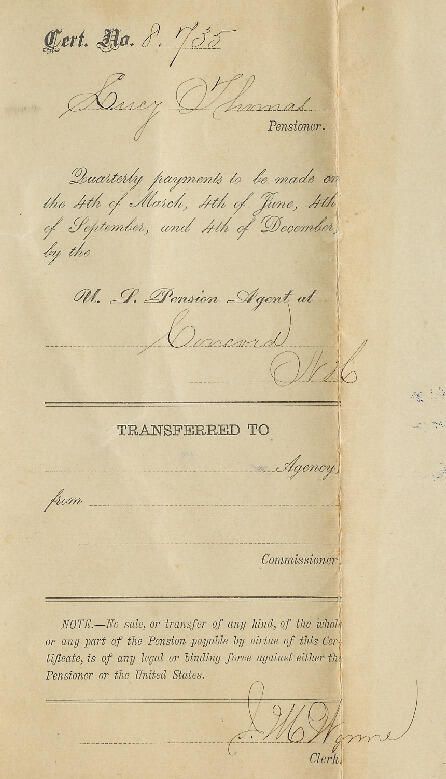 Cert. No. 8.735
Lucy Thomas
Pensioner.
Quarterly payments to be made on
the 4th of March, 4th of June, 4th
of September, and 4th of December,
by the
U. S. Pension Agent at
Concord
N H
TRANSFERRED TO
Agency
from
Commissioner
NOTE.—No sale, or transfer of any kind, of the whole
or any part of the Pension payable by virtue of this Cer-
tificate, is of any legal or binding force against either the
Pensioner or the United States.
J. M. Wynne
Clerk.